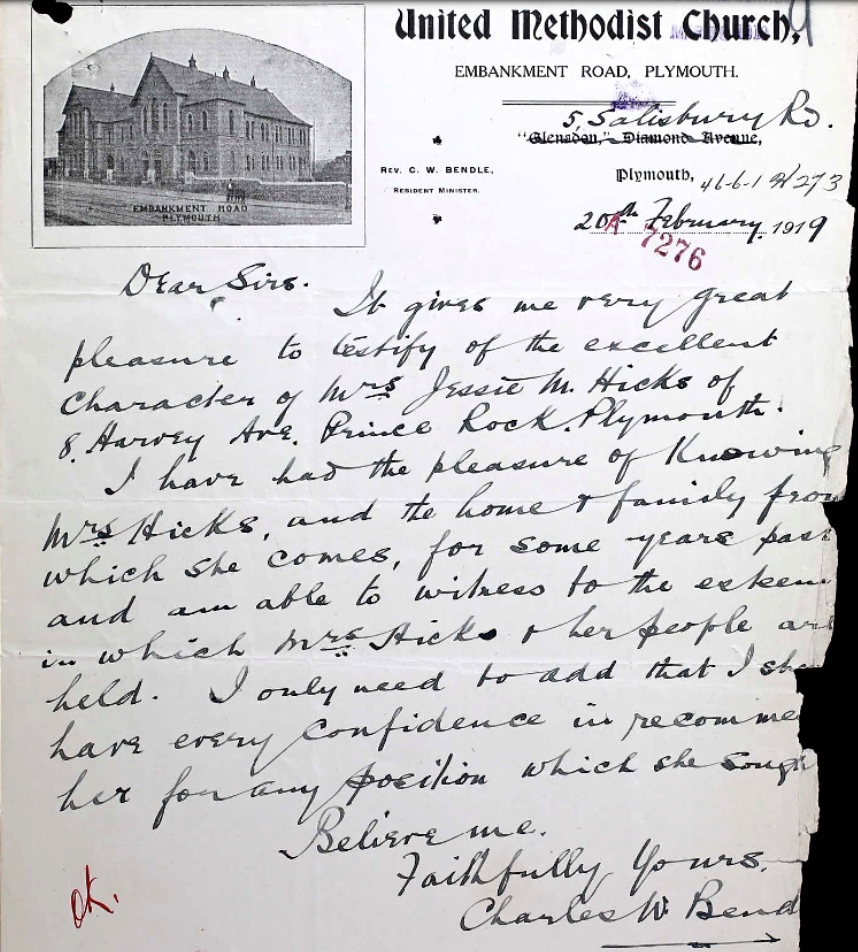 United Methodist Church,
EMBANKMENT ROAD, PLYMOUTH.
5, Salisbury Rd.
"Glenadon," Diamond Avenue,
REV. C. W. BENDLE,
RESIDENT MINISTER.
Plymouth, 46-6-1
20th February 1919
A 7276
EMBANKMENT ROAD
PLYMOUTH
Dear Sirs.
It gives me very great
pleasure to testify of the excellent
Character of Mrs Jessie M. Hicks of
8. Harvey Ave. Prince Rock. Plymouth.
I have had the pleasure of Knowing
Mrs Hicks, and the home & family from
which she comes, for some years past
and am able to witness to the esteem
in which Mrs Hicks & her people are
held. I only need to add that I sh
have every confidence in recomme
her for any position which she sough
Believe me.
Faithfully Yours.
Charles W. Bend
OK.